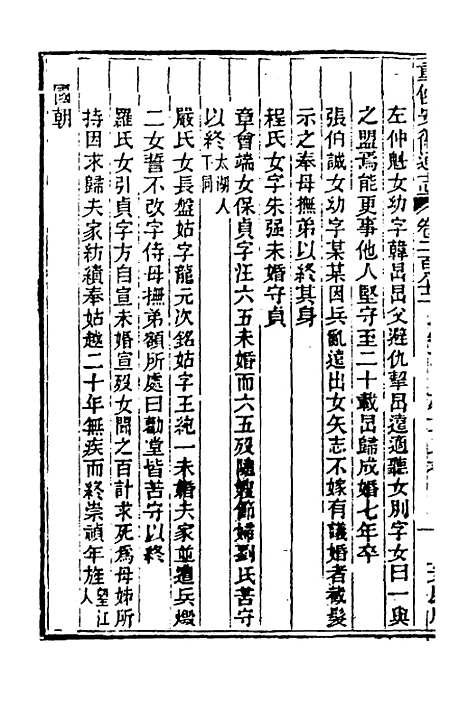 重修安徽通志 卷二百八十二
左仲魁女幼字韓昌昌父避仇挈昌遠適聽女別字女曰一與
之盟焉能更事他人堅守至二十載昌歸成婚七年卒
張伯誠女幼字某某因兵亂遠出女矢志不嫁有議婚者截髮
示之奉母撫弟以終其身
程氏女字朱强未婚守貞
章會端女保貞字汪六五未婚而六五歿隨嫂節婦劉氏苦守
以終太湖人下同
嚴氏女長盤姑字龍元次銘姑字王純一未婚夫家並遭兵燬
二女誓不改字侍母撫弟額所處曰勸堂皆苦守以終
羅氏女引貞字方自宣未婚宣歿女聞之百計求死為母姊所
持因求歸夫家紡績奉姑越二十年無疾而終崇禎年旌望江人
國朝